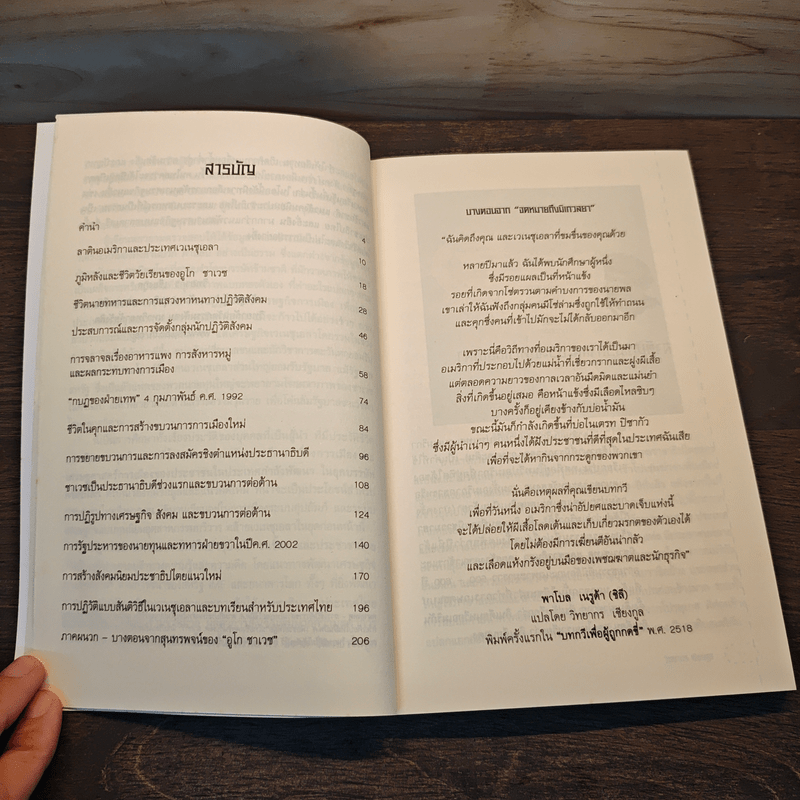 สารบัญ
คำนำ 4
ลาตินอเมริกาและประเทศเวเนซุเอลา 10
ภูมิหลังและชีวิตวัยเรียนของอูโก ชาเวซ 18
ชีวิตนายทหารและการแสวงหาหนทางปฏิวัติสังคม 28
ประสบการณ์และการจัดตั้งกลุ่มนักปฏิวัติสังคม 46
การจลาจลเรื่องอาหารแพง การสังหารหมู่
และผลกระทบทางการเมือง 58
"กบฏของฝ่ายเทพ" 4 กุมภาพันธ์ ค.ศ. 1992 74
ชีวิตในคุกและการสร้างขบวนการการเมืองใหม่ 84
การขยายขบวนการและการลงสมัครชิงตำแหน่งประธานาธิบดี 96
ชาเวซเป็นประธานาธิบดีช่วงแรกและขบวนการต่อต้าน 108
การปฏิรูปทางเศรษฐกิจ สังคม และขบวนการต่อต้าน 124
การรัฐประหารของนายทุนและทหารฝ่ายขวาในปีค.ศ. 2002 140
การสร้างสังคมนิยมประชาธิปไตยแนวใหม่ 170
การปฏิวัติแบบสันติวิธีในเวเนซุเอลาและบทเรียนสำหรับประเทศไทย 196
ภาคผนวก – บางตอนจากสุนทรพจน์ของ "อูโก ชาเวซ" 206
บางตอนจาก "จดหมายถึงมิเกวลยา"
"ฉันคิดถึงคุณ และเวเนซุเอลาที่ขมขื่นของคุณด้วย
หลายปีมาแล้ว ฉันได้พบนักศึกษาผู้หนึ่ง
ซึ่งมีรอยแผลเป็นที่หน้าแข้ง
รอยที่เกิดจากโซ่ตรวนตามคำบงการของนายพล
เขาเล่าให้ฉันฟังถึงกลุ่มคนมีโซ่ล่ามซึ่งถูกใช้ให้ทำถนน
และคุกซึ่งคนที่เข้าไปมักจะไม่ได้กลับออกมาอีก
เพราะนี่คือวิถีทางที่อเมริกาของเราได้เป็นมา
อเมริกาที่ประกอบไปด้วยแม่น้ำที่เชี่ยวกรากและฝูงผีเสื้อ
แต่ตลอดความยาวของกาลเวลาอันมืดมิดและแม่นยำ
สิ่งที่เกิดขึ้นอยู่เสมอ คือหน้าแข้งซึ่งมีเลือดไหลซิบๆ
บางครั้งก็อยู่เคียงข้างกับบ่อน้ำมัน
ขณะนี้มันก็กำลังเกิดขึ้นที่บ่อไนเตรท ปิซากัว
ซึ่งมีผู้นำเน่าๆ คนหนึ่งได้ฝังประชาชนที่ดีที่สุดในประเทศฉันเสีย
เพื่อที่จะได้หากินจากกระดูกของพวกเขา
นั่นคือเหตุผลที่คุณเขียนบทกวี
เพื่อที่วันหนึ่ง อเมริกาซึ่งน่าอัปยศและบาดเจ็บแห่งนี้
จะได้ปล่อยให้ผีเสื้อโลดเต้นและเก็บเกี่ยวมรกตของตัวเองได้
โดยไม่ต้องมีการเฆี่ยนตีอันน่ากลัว
และเลือดแห้งกรังอยู่บนมือของเพชฌฆาตและนักธุรกิจ"
พาโบล เนรูด้า (ชิลี)
แปลโดย วิทยากร เชียงกูล
พิมพ์ครั้งแรกใน "บทกวีเพื่อผู้ถูกกดขี่" พ.ศ. 2518